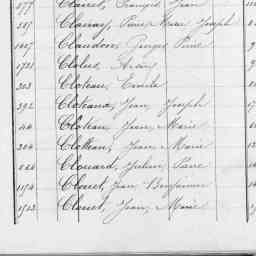 377 Clairet, François Jean
507 Clairay, Pierre Marie Joseph
1007 Claudon, Georges Paul
1721
203 Cloteau, Emile
392 Cloteaud, Jean Joseph
Cloteau, Jean Marie
204 Clotteau, Jean Marie
Clouard, Julien Pierre
1194 Clouet, Jean Benjamin
1523 Clouet, Jean Marie